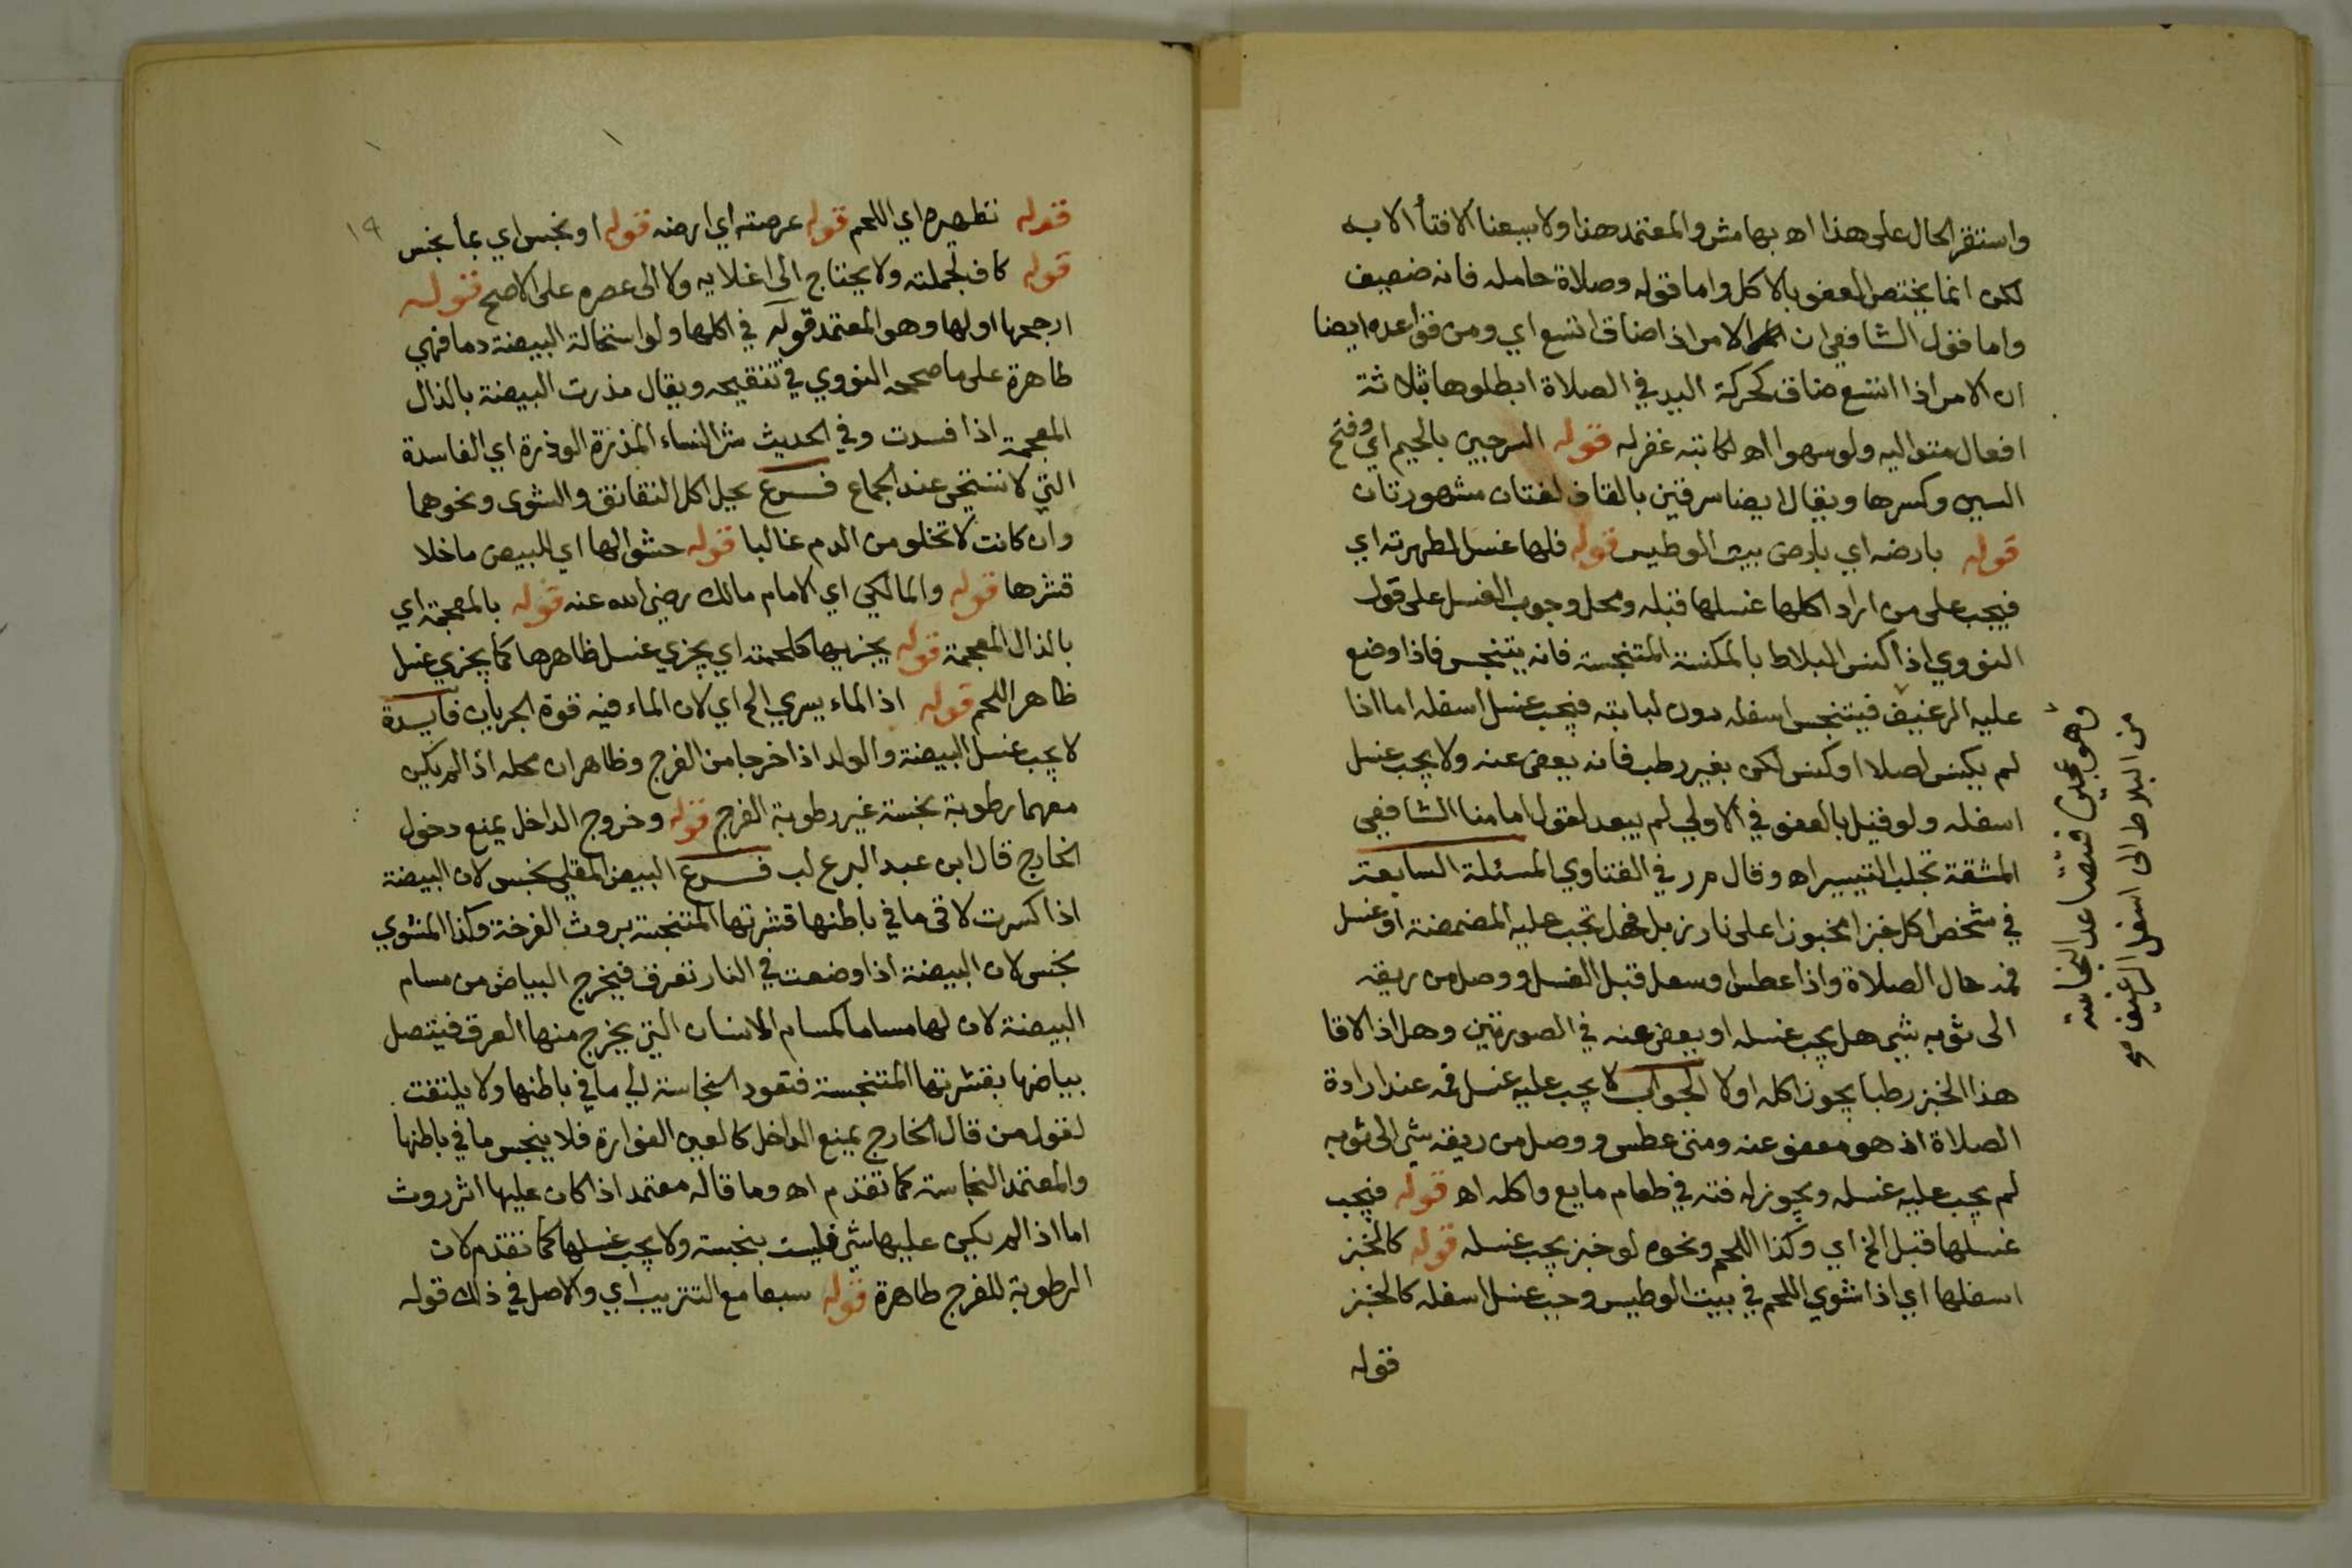 واستقر الحال على هذا اه بهامش والمعتمد هذا ولا يسعنا الافتأ الا به
لكن انما يختص العفو بالاكل واما قوله وصلاة حامله فانه ضعيف
واما فقول الشافعي ان الامر اذا ضاق اتسع اي ومن قواعده ايضا
ان الامر اذا اتسع ضاق كحركة اليد في الصلاة ابطلوها بثلاثة
افعال متواليه ولو سهوا اه لكاتبه غفر له قوله السرجين بالجيم اي وفتح
السين وكسرها ويقال ايضا سرقين بالقاف لغتان مشهورتان
قوله بارضه اي بارض بيت الوطيس قوله فلها غسل لطهرته اي
فيجب على من اراد اكلها غسلها قبله ومحل وجوب الغسل على قول
النووي اذا كنس البلاط بالمكنسة المتنجسة فانه يتنجس فاذا وضع
عليه الرغيف فيتنجس اسفله دون لبابته فيجب غسل اسفله اما اذا
لم يكنس اصلا او كنس لكن بغير رطب فانه يعفى عنه ولا يجب غسل
اسفله ولو قيل بالعفو في الاولي لم يبعد لقول امامنا الشافعي
المشقة تجلب التيسير اه وقال م ر في الفتاوي المسئلة السابعة
في شخص اكل خبزا مخبوزا على نار زبل فهل تجب عليه المضمضة او غسل
فمه حال الصلاة واذا عطس او سعل قبل الغسل ووصل من ريقه
الى ثوبه شي هل يجب غسله او يعفى عنه في الصورتين وهل اذا لاقا
هذا الخبز رطبا يجوز اكله اولا الجواب لا يجب عليه غسل فمه عند ارادة
الصلاة اذ هو معفو عنه ومتى عطس ووصل من ريقه شي الى ثوبه
لم يجب عليه غسله ويجوز له فته في طعام مايع واكله اه قوله فيجب
غسلها قبل الخ اي وكذا اللحم ونحوه لو خبز يجب غسله قوله كالخبز
اسفلها اي اذا شوي اللحم في بيت الوطيس وجب غسل اسفله كالخبز
قوله
فتصاعد النجاسة
من البلاط الى اسفل الرغيف
١٩
قوله تطهيره اي اللحم قوله عرصته اي ارضه قوله او نجس اي بماء نجس
قوله كاف لجملته ولا يحتاج الى اغلايه ولا الى عصره على الاصح قوله
ارجحها اولها وهو المعتمد قوله في اكلها ولو استحالة البيضة دما فهي
طاهرة على ما صححه النووي في تنقيحه ويقال مذرت البيضة بالذال
المعجمة اذا فسدت وفي الحديث شر النساء المذرة الوذرة اي الفاسدة
التي لا تستحي عند الجماع فرع يحل اكل النقانق والشوى ونحوهما
وان كانت لا تخلو من الدم غالبا قوله حشو الها اي للبيض ما خلا
قشرها قوله والمالكي اي الامام مالك رضي الله عنه قوله بالمعجمة اي
بالذال المعجمة قوله يجزيها كلحمة اي يجزي غسل ظاهرها كما يجزي غسل
ظاهر اللحم قوله اذ الماء يسري الخ اي لان الماء فيه قوة الجريان فايدة
لا يجب غسل البيضة والولد اذا خرجا من الفرج وظاهر ان محله اذا لم يكن
معهما رطوبة نجسة غير رطوبة الفرج قوله وخروج الداخل يمنع دخول
الخارج قال ابن عبد البر فرع البيض المقلي نجس لان البيضة
اذا كسرت لاقى ما في باطنها قشرتها المتنجسة بروث الفرخة وكذا المشوي
نجس لان البيضة اذا وضعت في النار تعرق فيخرج البياض من مسام
البيضة لان لها مساما كمسام الانسان التي يخرج منها العرق فيتصل
بياضها بقشرتها المتنجسة فتعود النجاسة الي ما في باطنها ولا يلتفت
لقول من قال الخارج يمنع الداخل كالعين الفوارة فلا ينجس ما في باطنها
والمعتمد النجاسة كما تقدم اه وما قاله معتمد اذا كان عليها اثر روث
اما اذا لم يكن عليها شي فليست بنجسة ولا يجب غسلها كما تقدم لان
الرطوبة للفرج طاهرة قوله سبعا مع التتريب اي والاصل في ذلك قوله